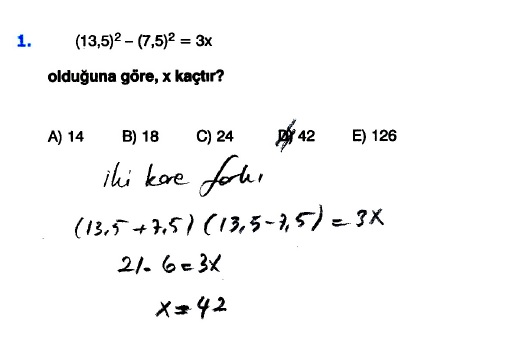 1. (13,5)² – (7,5)² = 3x
olduğuna göre, x kaçtır?
A) 14 B) 18 C) 24 D) 42 E) 126
iki kare farkı
(13,5 + 7,5) (13,5 - 7,5) = 3x
21 . 6 = 3x
x = 42